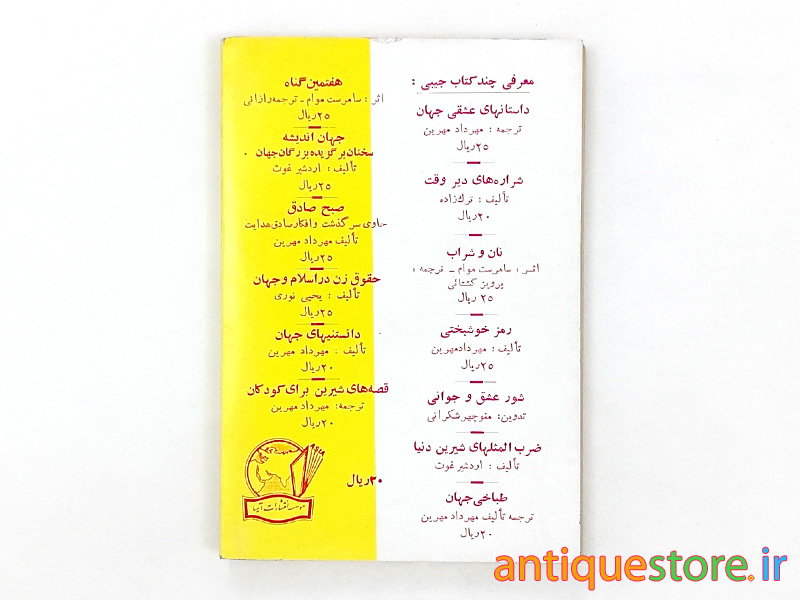 معرفی چند کتاب جیبی :
داستانهای عشقی جهان
ترجمه : مهرداد مهرین
۲۵ ریال
شراره‌های دیر وقت
تألیف : ترک‌زاده
۲۰ ریال
نان و شراب
اثر : سامرست موام ـ ترجمه :
پرویز گنتائی
۲۵ ریال
رمز خوشبختی
تألیف : مهرداد مهرین
۲۵ ریال
شور عشق و جوانی
تدوین: منوچهر شکرانی
ضرب المثلهای شیرین دنیا
تألیف : اردشیر غوث
طباخی جهان
ترجمه تألیف مهرداد مهرین
۲۰ ریال
هفتمین گناه
اثر : سامرست موام ـ ترجمه رازانی
۲۵ ریال
جهان اندیشه
سخنان برگزیده بزرگان جهان .
تألیف : اردشیر غوث
۲۵ ریال
صبح صادق
حاوی سرگذشت و افکار صادق هدایت
تألیف مهرداد مهرین
۲۵ ریال
حقوق زن در اسلام و جهان
تألیف : یحیی نوری
۲۵ ریال
دانستنیهای جهان
تألیف : مهرداد مهرین
۲۰ ریال
قصه‌های شیرین برای کودکان
ترجمه: مهرداد مهرین
۲۰ ریال
۳۰ ریال
موسسه انتشارات آسیا
antiquestore.ir